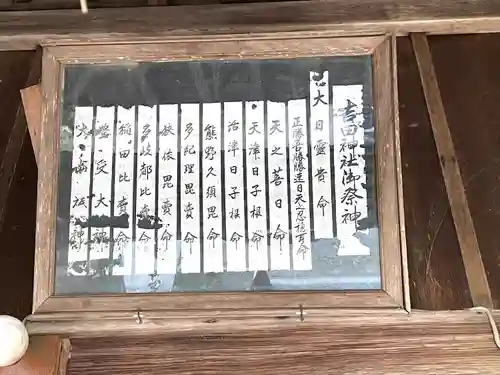 吉田神社御祭神
大日霊貴命
正勝吾勝勝速日天之忍穂耳命
天之菩日命
天津日子根命
活津日子根命
熊野久須毘命
多紀理毘賣命
狭依毘賣命
多岐都比賣命
稲田比賣命
豊受大神